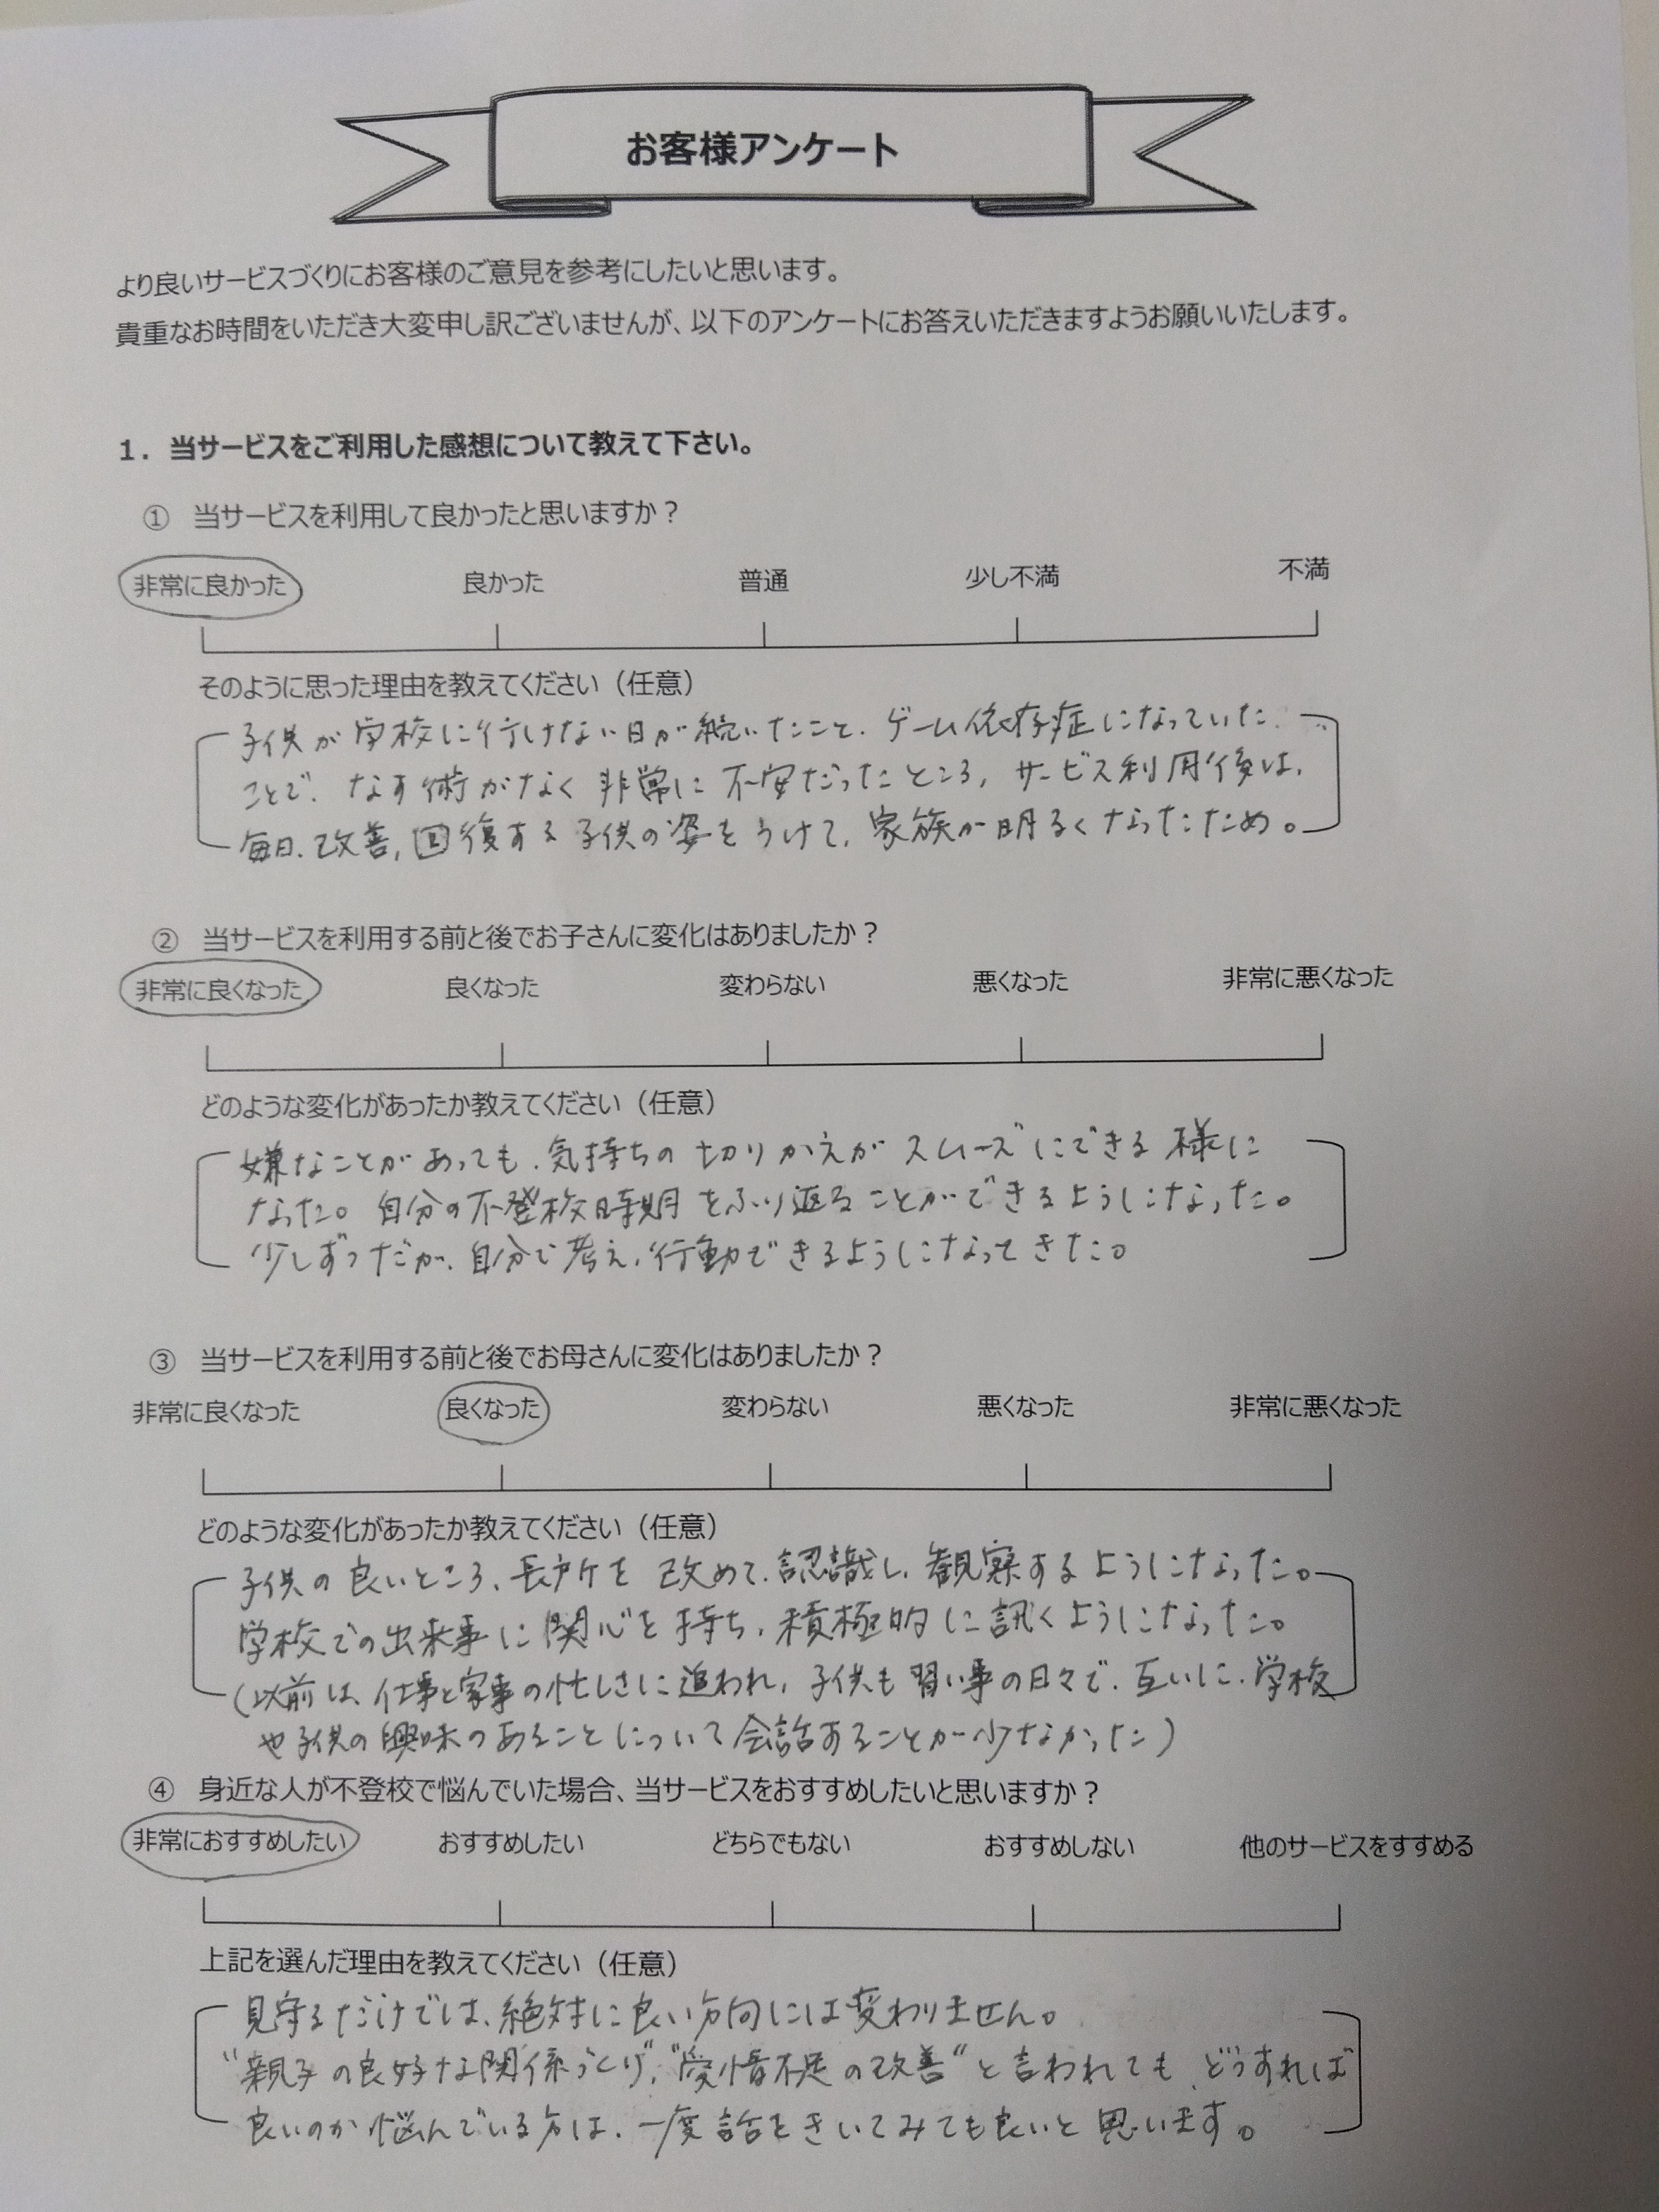 お客様アンケート
より良いサービスづくりにお客様のご意見を参考にしたいと思います。
貴重なお時間をいただき大変申し訳ございませんが、以下のアンケートにお答えいただきますようお願いいたします。
1. 当サービスをご利用した感想について教えて下さい。
① 当サービスを利用して良かったと思いますか？
非常に良かった 良かった 普通 少し不満 不満
そのように思った理由を教えてください（任意）
子供が学校に行けない日が続いたこと、ゲーム依存症になっていた
ことで、なす術がなく非常に不安だったところ、サービス利用後は、
毎日、改善,回復する子供の姿をうけて、家族が明るくなったため。
② 当サービスを利用する前と後でお子さんに変化はありましたか？
非常に良くなった 良くなった 変わらない 悪くなった 非常に悪くなった
どのような変化があったか教えてください（任意）
嫌なことがあっても、気持ちの切りかえがスムーズにできる様に
なった。自分の不登校時期をふり返ることができるようになった。
少しずつだが、自分で考え、行動できるようになってきた。
③ 当サービスを利用する前と後でお母さんに変化はありましたか？
非常に良くなった 良くなった 変わらない 悪くなった 非常に悪くなった
どのような変化があったか教えてください（任意）
子供の良いところ、長所を改めて、認識し、観察するようになった。
学校での出来事に関心を持ち、積極的に訊くようになった。
（以前は、仕事と家事の忙しさに追われ、子供も習い事の日々で、互いに、学校
や子供の興味のあることについて会話することが少なかった）
④ 身近な人が不登校で悩んでいた場合、当サービスをおすすめしたいと思いますか？
非常におすすめしたい おすすめしたい どちらでもない おすすめしない 他のサービスをすすめる
上記を選んだ理由を教えてください（任意）
見守るだけでは、絶対に良い方向には変わりません。
"親子の良好な関係づくり"、"愛情不足の改善"と言われても、どうすれば
良いのか悩んでいる方は、一度話をきいてみても良いと思います。